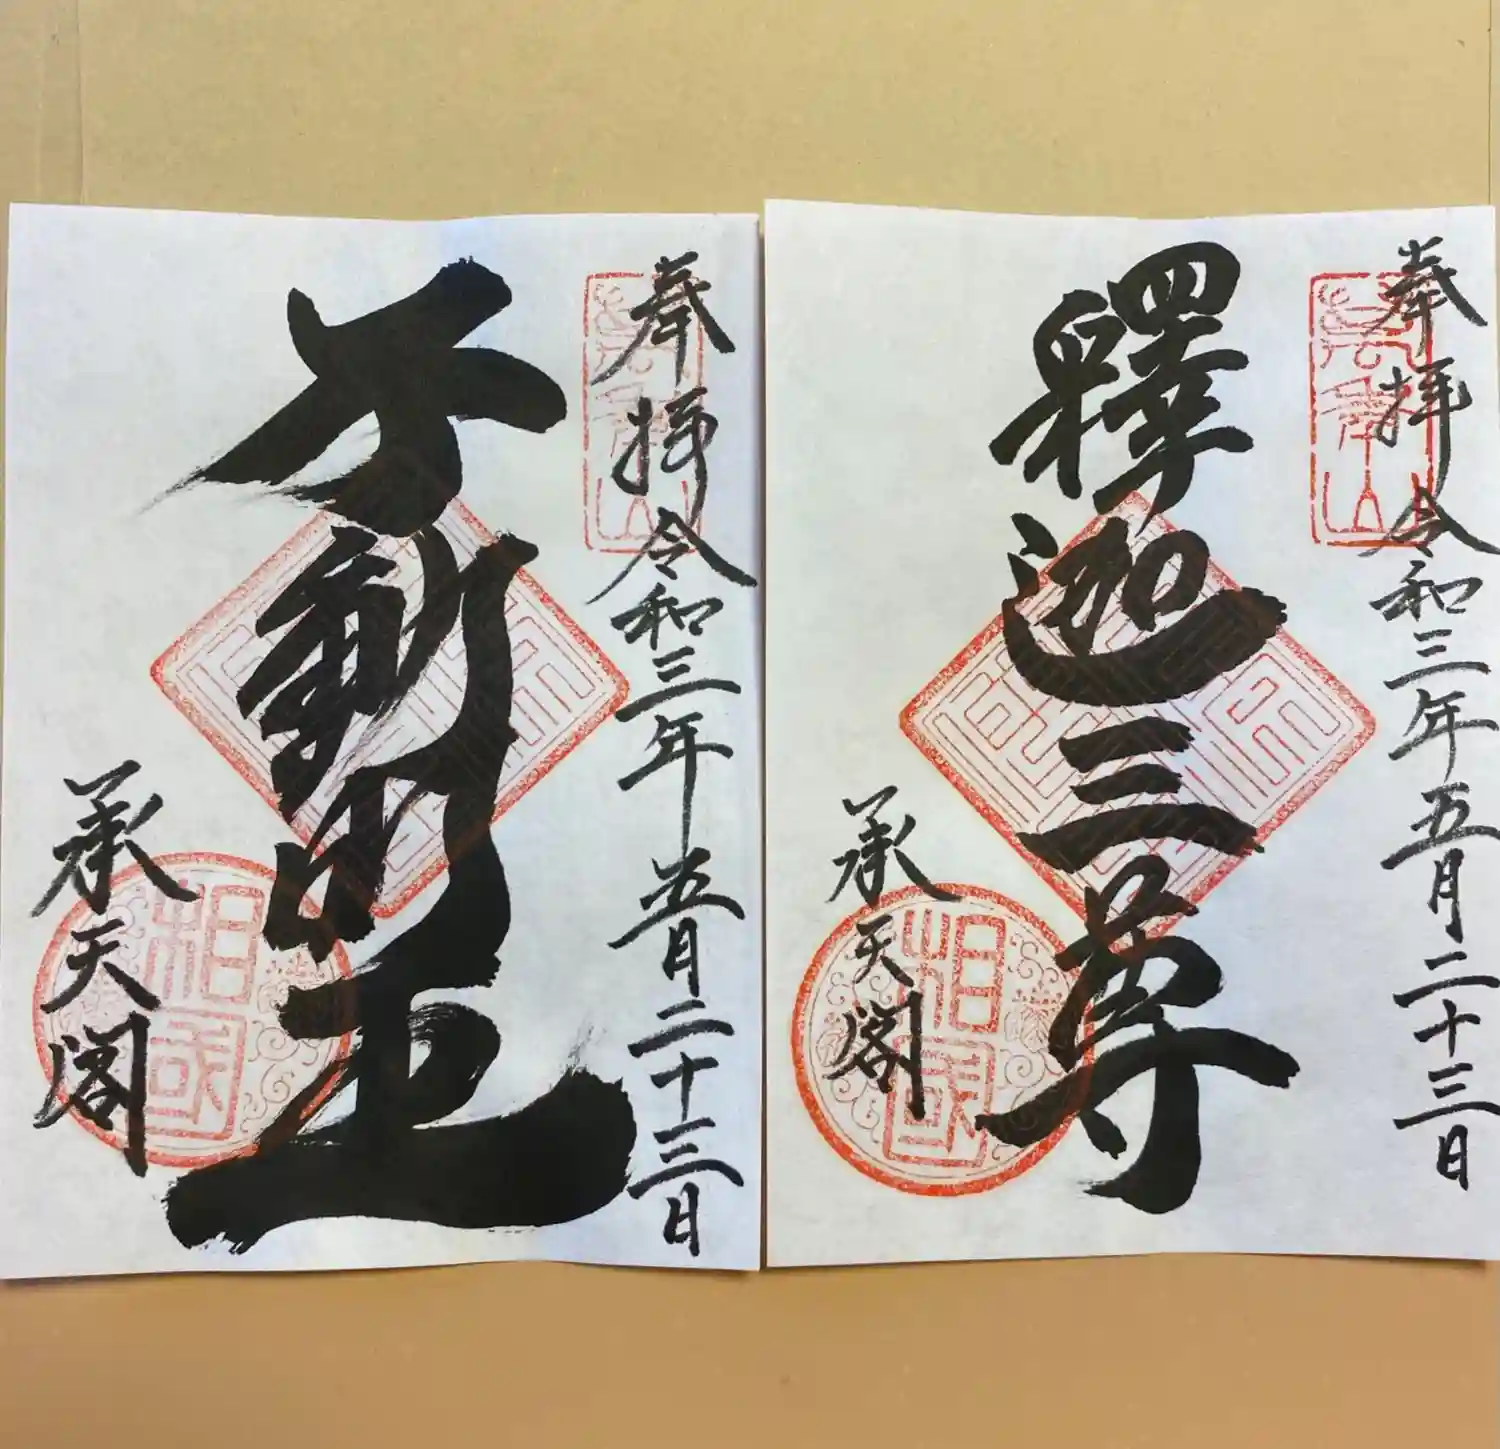 奉拝 令和三年五月二十三日
萬年山
釋迦三尊
承天閣
相國
奉拝 令和三年五月二十三日
萬年山
不動明王
承天閣
相國